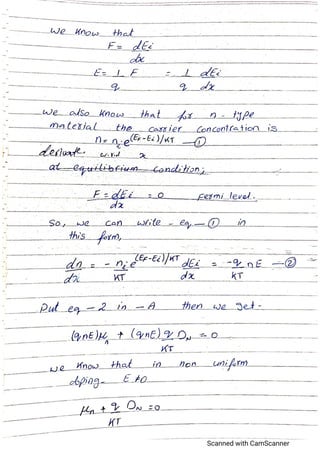 we know that
F = dEi
dx
E = 1 F = 1 dEi
q q dx
we also know that for n-type
material the carrier concentration is
n = ni e(EF-Ei)/KT —①
derivate w.r.t x
at equilibrium condition,
F = dEi = 0 fermi level.
dx
So, we can write eq —① in
this form,
dn = - ni e(EF-Ei)/KT dEi = -q n E —②
dx KT dx KT
Put eq - 2 in - A then we get -
(qnE)μn + (qnE) q DN = 0
KT
we know that in non uniform
doping - E ≠ 0
μn + q DN = 0
KT
Scanned with CamScanner